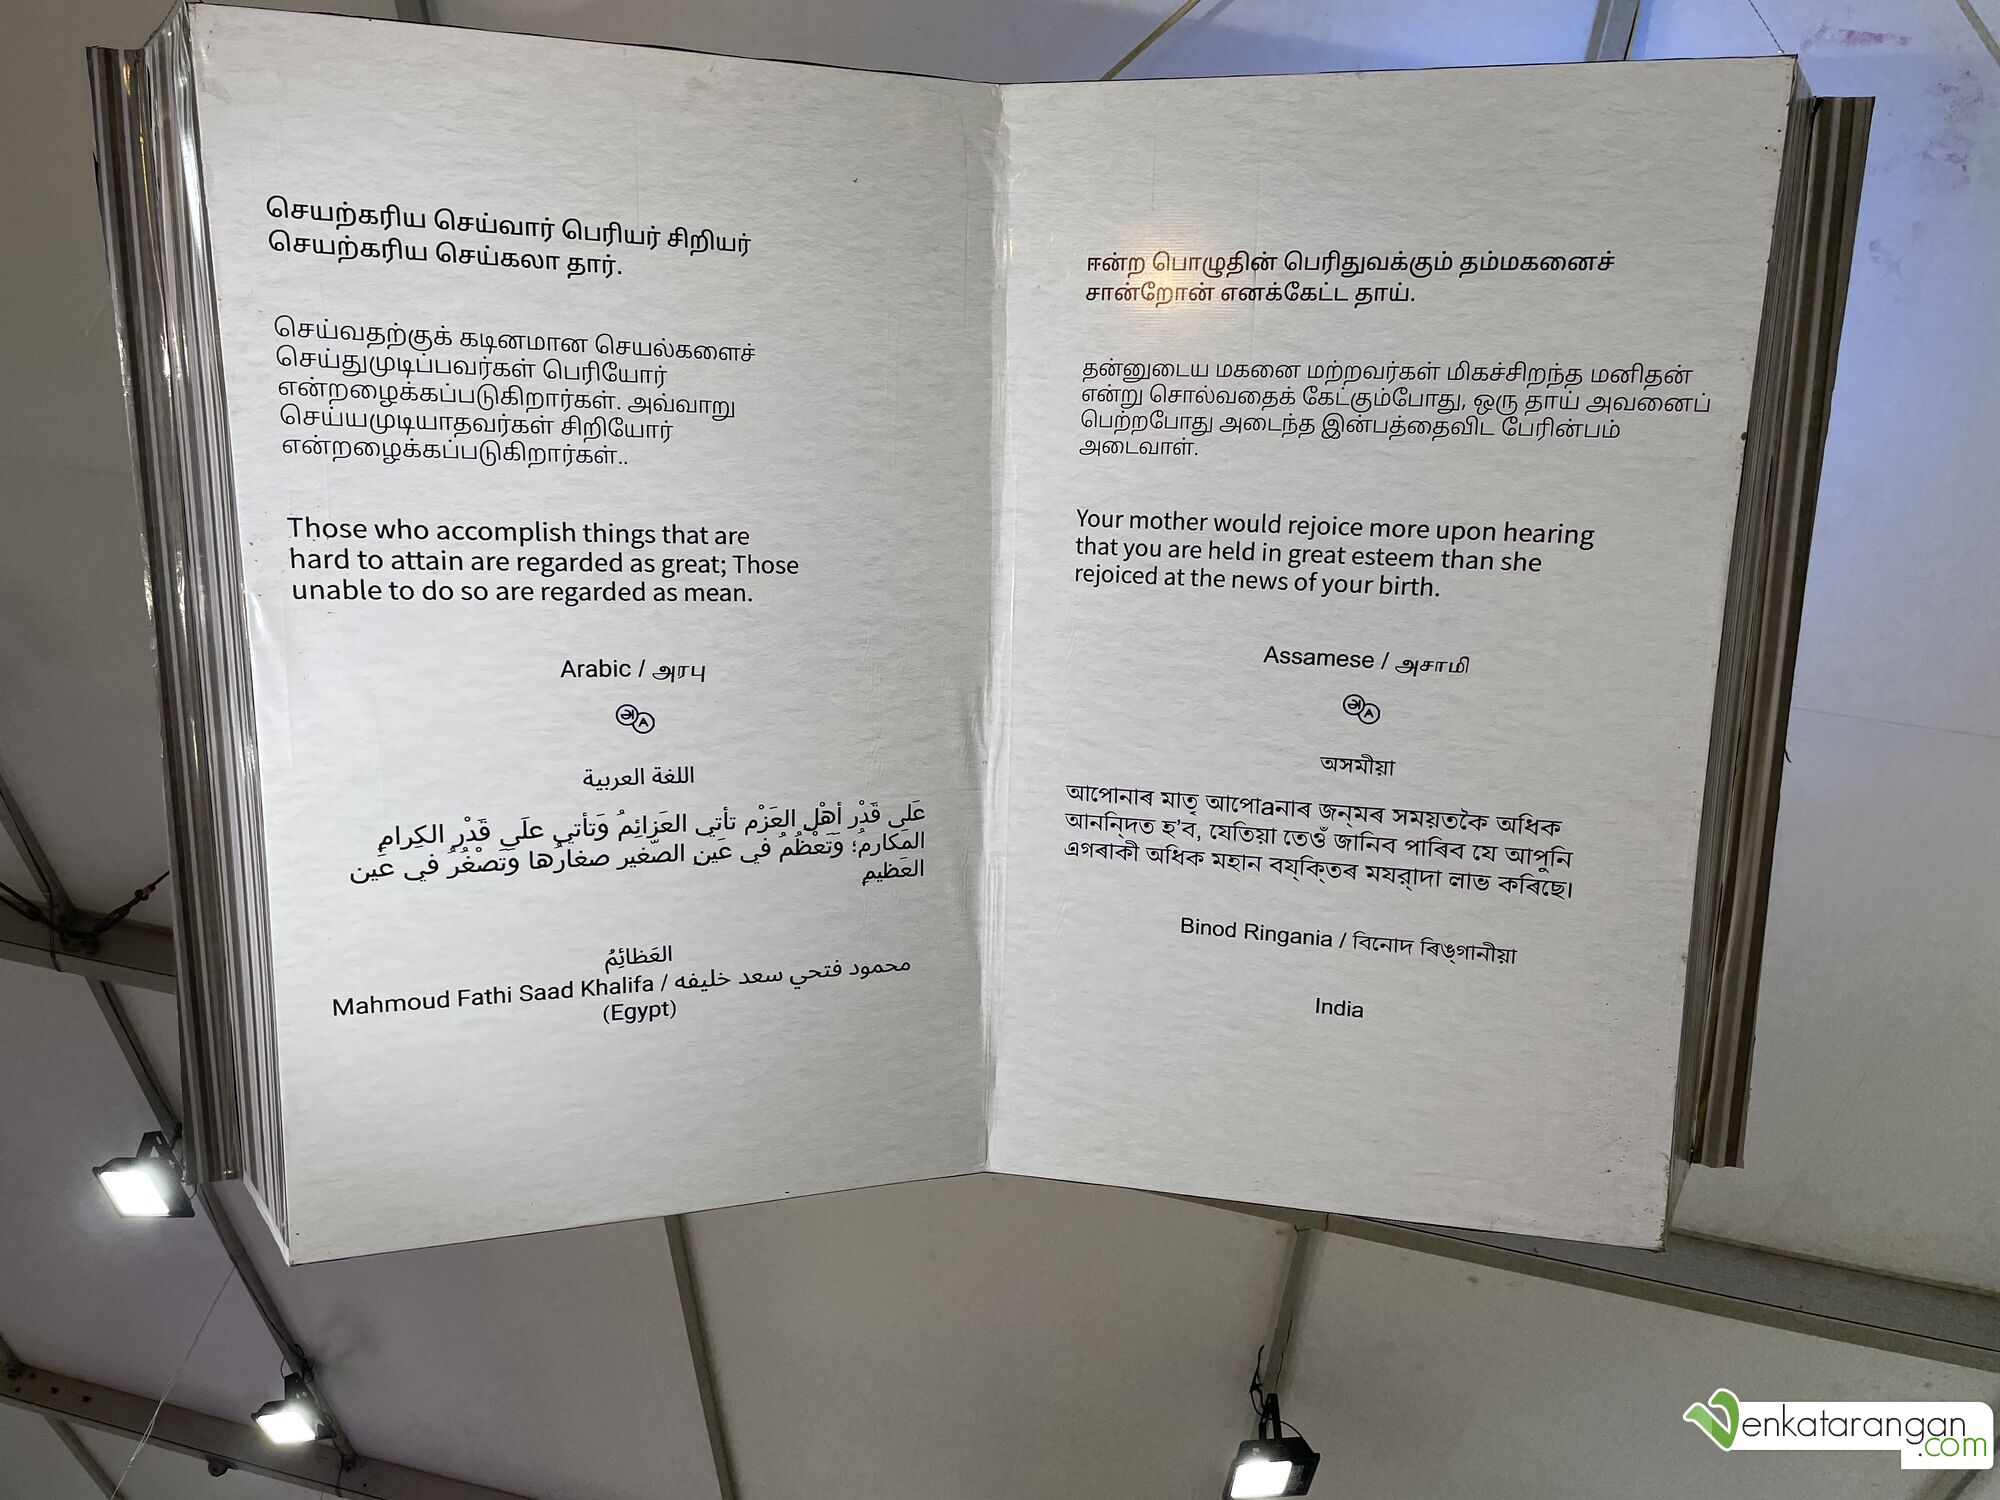 செயற்கரிய செய்வார் பெரியர் சிறியர்
செயற்கரிய செய்கலா தார்.
செய்வதற்குக் கடினமான செயல்களைச்
செய்துமுடிப்பவர்கள் பெரியோர்
என்றழைக்கப்படுகிறார்கள். அவ்வாறு
செய்யமுடியாதவர்கள் சிறியோர்
என்றழைக்கப்படுகிறார்கள்..
Those who accomplish things that are
hard to attain are regarded as great; Those
unable to do so are regarded as mean.
Arabic / அரபு
அ A
اللغة العربية
عَلى قَدْرِ أهْلِ العَزْم تأتي العَزائِمُ وَتأتي علَى قَدْرِ الكِرامِ
المَكارمُ؛ وَتَعْظُمُ في عَينِ الصّغيرِ صغارُها وَتَصْغُرُ في عَين
العَظيمِ
العَظائِمُ
Mahmoud Fathi Saad Khalifa / محمود فتحي سعد خليفه
(Egypt)
ஈன்ற பொழுதின் பெரிதுவக்கும் தம்மகனைச்
சான்றோன் எனக்கேட்ட தாய்.
தன்னுடைய மகனை மற்றவர்கள் மிகச்சிறந்த மனிதன்
என்று சொல்வதைக் கேட்கும்போது, ஒரு தாய் அவனைப்
பெற்றபோது அடைந்த இன்பத்தைவிட பேரின்பம்
அடைவாள்.
Your mother would rejoice more upon hearing
that you are held in great esteem than she
rejoiced at the news of your birth.
Assamese / அசாமி
அ A
অসমীয়া
আপোনাৰ মাতৃ আপোaনাৰ জন্‌মৰ সময়তকৈ অধিক
আনন্‌দিত হ'ব, যেতিয়া তেওঁ জানিব পাৰিব যে আপুনি
এগৰাকী অধিক মহান বয্‌কি্তৰ মযৰ্‌াদা লাভ কৰিছে।
Binod Ringania / বিনোদ ৰিঙ্‌গানীয়া
India
Venkatarangan
.com